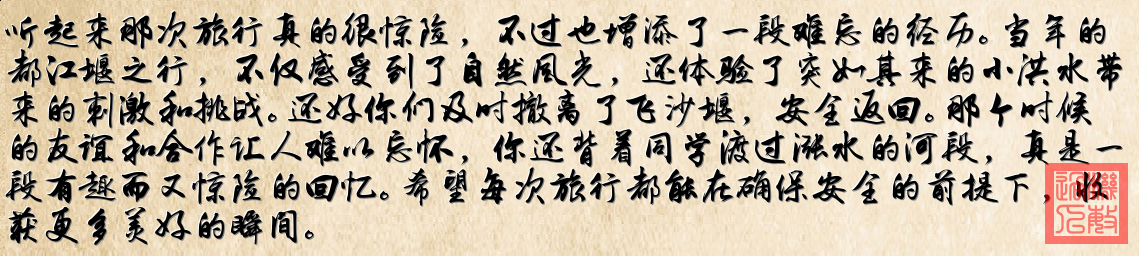 听起来那次旅行真的很惊险，不过也增添了一段难忘的经历。当年的
都江堰之行，不仅感受到了自然风光，还体验了突如其来的小洪水带
来的刺激和挑战。还好你们及时撤离了飞沙堰，安全返回。那个时候
的友谊和合作让人难以忘怀，你还背着同学渡过涨水的河段，真是一
段有趣而又惊险的回忆。希望每次旅行都能在确保安全的前提下，收
获更多美好的瞬间。